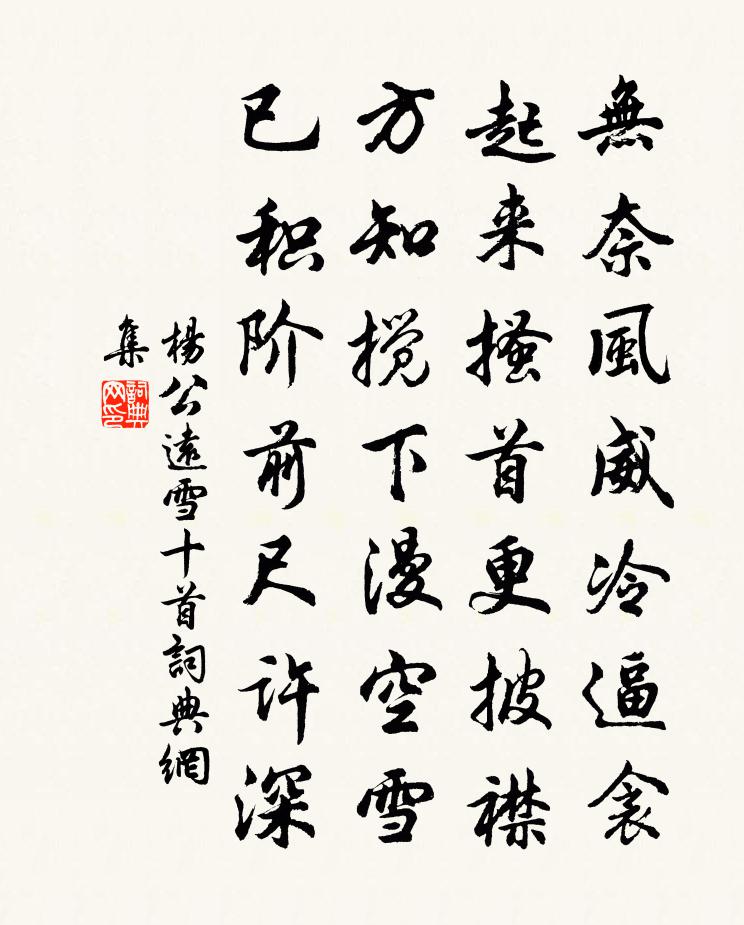 無奈風威冷逼衾
起来搔首更披襟
方知搅下漫空雪
已积阶前尺许深
楊公遠雪十首詞典網
集
詞典网印